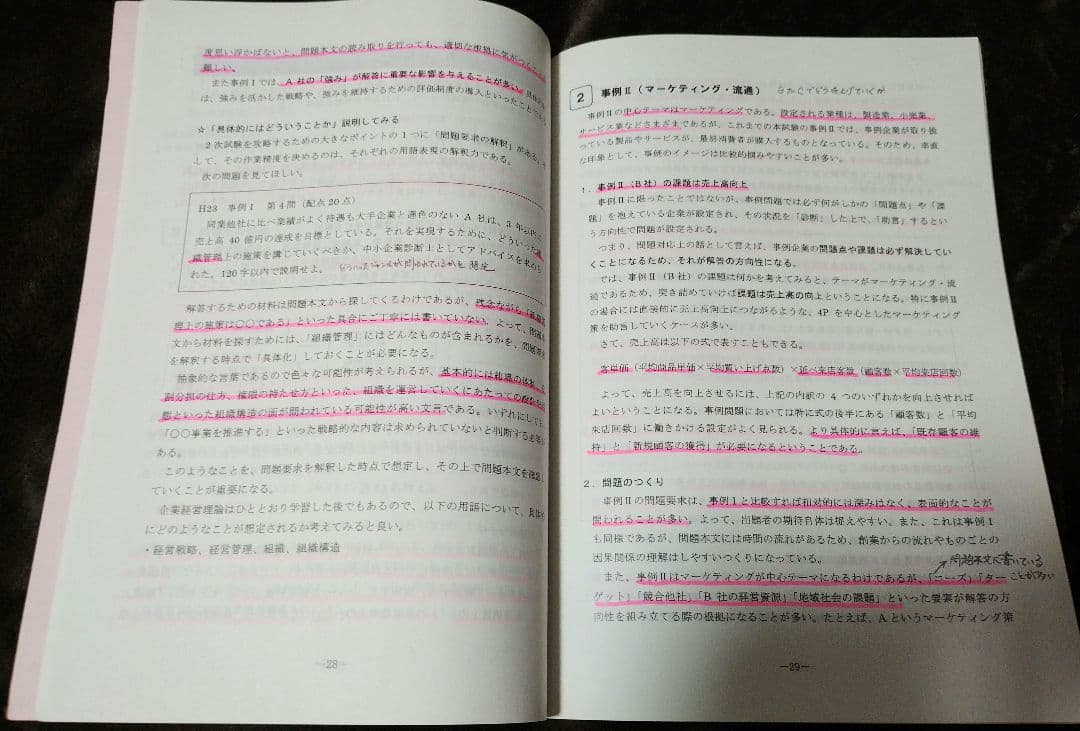 度思い浮かばないと、問題本文の読み取りを行っても、適切な根拠に気がつくことが
難しい。
また事例Ⅰでは、A 社の「強み」が解答に重要な影響を与えることが多い。具体的に
は、強みを活かした戦略や、強みを維持するための評価制度の導入といったことで
☆「具体的にはどういうことか」説明してみる
2 次試験を攻略するための大きなポイントの 1 つに「問題要求の解釈」がある。
して、その作業精度を決めるのは、それぞれの用語表現の解釈力である。
次の問題を見てほしい。
H23 事例Ⅰ 第 4 問（配点 20 点）
同業他社に比べ業績がよく待遇も大手企業と遜色のない A 社は、3 年以内に
売上高 40 億円の達成を目標としている。それを実現するために、どういった
織管理上の施策を講じていくべきか、中小企業診断士としてアドバイスを求め
れた。120 字以内で説明せよ。
解答するための材料は問題本文から探してくるわけであるが、残念ながら「組織
理上の施策は〇〇である」といった具合にご丁寧には書いていない。よって、問題
文から材料を探すためには、「組織管理」にはどんなものが含まれるかを、問題
を解釈する時点で「具体化」しておくことが必要になる。
抽象的な言葉であるので色々な可能性が考えられるが、基本的には組織の体制、
割分担の仕方、権限の持たせ方といった、組織を運営していくにあたっての
態といった組織構造の面が問われている可能性が高い文言である。いずれにしても
「〇〇事業を推進する」といった戦略的な内容は求められていないと判断する必要
ある。
このようなことを、問題要求を解釈した時点で想定し、その上で問題本文を確認
ていくことが重要になる。
企業経営理論はひととおり学習した後でもあるので、以下の用語について、具体
にどのようなことが想定されるか考えてみると良い。
・経営戦略、経営管理、組織、組織構造
―28―
2 事例Ⅱ（マーケティング・流通）
事例Ⅱの中心テーマはマーケティングである。設定される業種は、製造業、小売業、
サービス業などさまざまであるが、これまでの本試験の事例Ⅱでは、事例企業が取り扱
っている製品やサービスが、最終消費者が購入するものとなっている。そのため、率直
な印象として、事例のイメージは比較的掴みやすいことが多い。
1．事例Ⅱ（B 社）の課題は売上高向上
事例Ⅱに限ったことではないが、事例問題では必ず何がしかの「問題点」や「課
題」を抱えている企業が設定され、その状況を「診断」した上で、「助言」するとい
う方向性で問題が設定される。
つまり、問題対応上の話として言えば、事例企業の問題点や課題は必ず解決してい
くことになるため、それが解答の方向性になる。
では、事例Ⅱ（B 社）の課題は何かを考えてみると、テーマがマーケティング・流
通であるため、突き詰めていけば課題は売上高の向上ということになる。特に事例Ⅱ
の場合には直接的に売上高向上につながるような、4P を中心としたマーケティング
策を助言していくケースが多い。
さて、売上高は以下の式で表すこともできる。
客単価（平均商品単価×平均買い上げ点数）×延べ来店客数（顧客数×平均来店回数）
よって、売上高を向上させるには、上記の内訳の 4 つのいずれかを向上させれば
よいということになる。事例問題においては特に式の後半にある「顧客数」と「平均
来店回数」に働きかける設定がよく見られる。より具体的に言えば、「既存顧客の維
持」と「新規顧客の獲得」が必要になるということである。
2．問題のつくり
事例Ⅱの問題要求は、事例Ⅰと比較すれば相対的には深みはなく、表面的なことが
問われることが多い。よって、出題者の期待自体は捉えやすい。また、これは事例Ⅰ
も同様であるが、問題本文には時間の流れがあるため、創業からの流れやものごとの
因果関係の理解はしやすいつくりになっている。
問題本文に書いている
ことが多い
また、事例Ⅱはマーケティングが中心テーマになるわけであるが、「ニーズ」「ター
ゲット」「競合他社」「B 社の経営資源」「地域社会の課題」といった要素が解答の方
向性を組み立てる際の根拠になることが多い。たとえば、A というマーケティング策
―29―